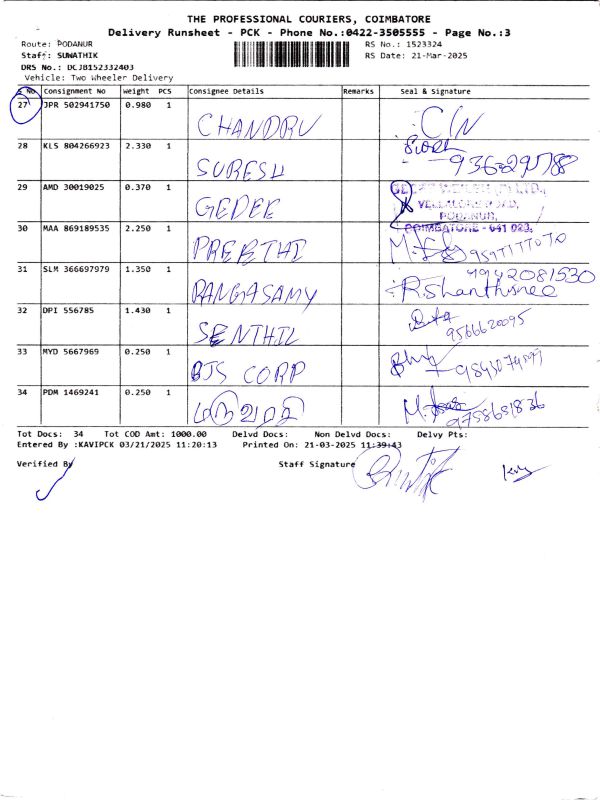 THE PROFESSIONAL COURIERS, COIMBATORE
Delivery Runsheet - PCK - Phone No.:0422-3505555 - Page No.:3
Route: PODANUR
RS No.: 1523324
Staff: SUWATHIK
RS Date: 21-Mar-2025
DRS No.: DCJB152332403
Vehicle: Two Wheeler Delivery
S No Consignment No Weight PCS Consignee Details Remarks Seal & Signature
27 JPR 502941750 0.980 1 CHANDRU
28 KLS 804266923 2.330 1 SURESH
29 AMD 30019025 0.370 1 GEDEE
VELLALORE ROAD,
PODANUR,
COIMBATORE - 641 023.
30 MAA 869189535 2.250 1 PREETHI
31 SLM 366697979 1.350 1 RANGASAMY 9942081530
R.Shanthisree
32 DPI 556785 1.430 1 SENTHIL 9566620095
33 MYD 5667969 0.250 1 BJS CORP
34 PDM 1469241 0.250 1 9758681836
Tot Docs: 34 Tot COD Amt: 1000.00 Delvd Docs: Non Delvd Docs: Delvy Pts:
Entered By :KAVIPCK 03/21/2025 11:20:13 Printed On: 21-03-2025 11:39:43
Verified By Staff Signature